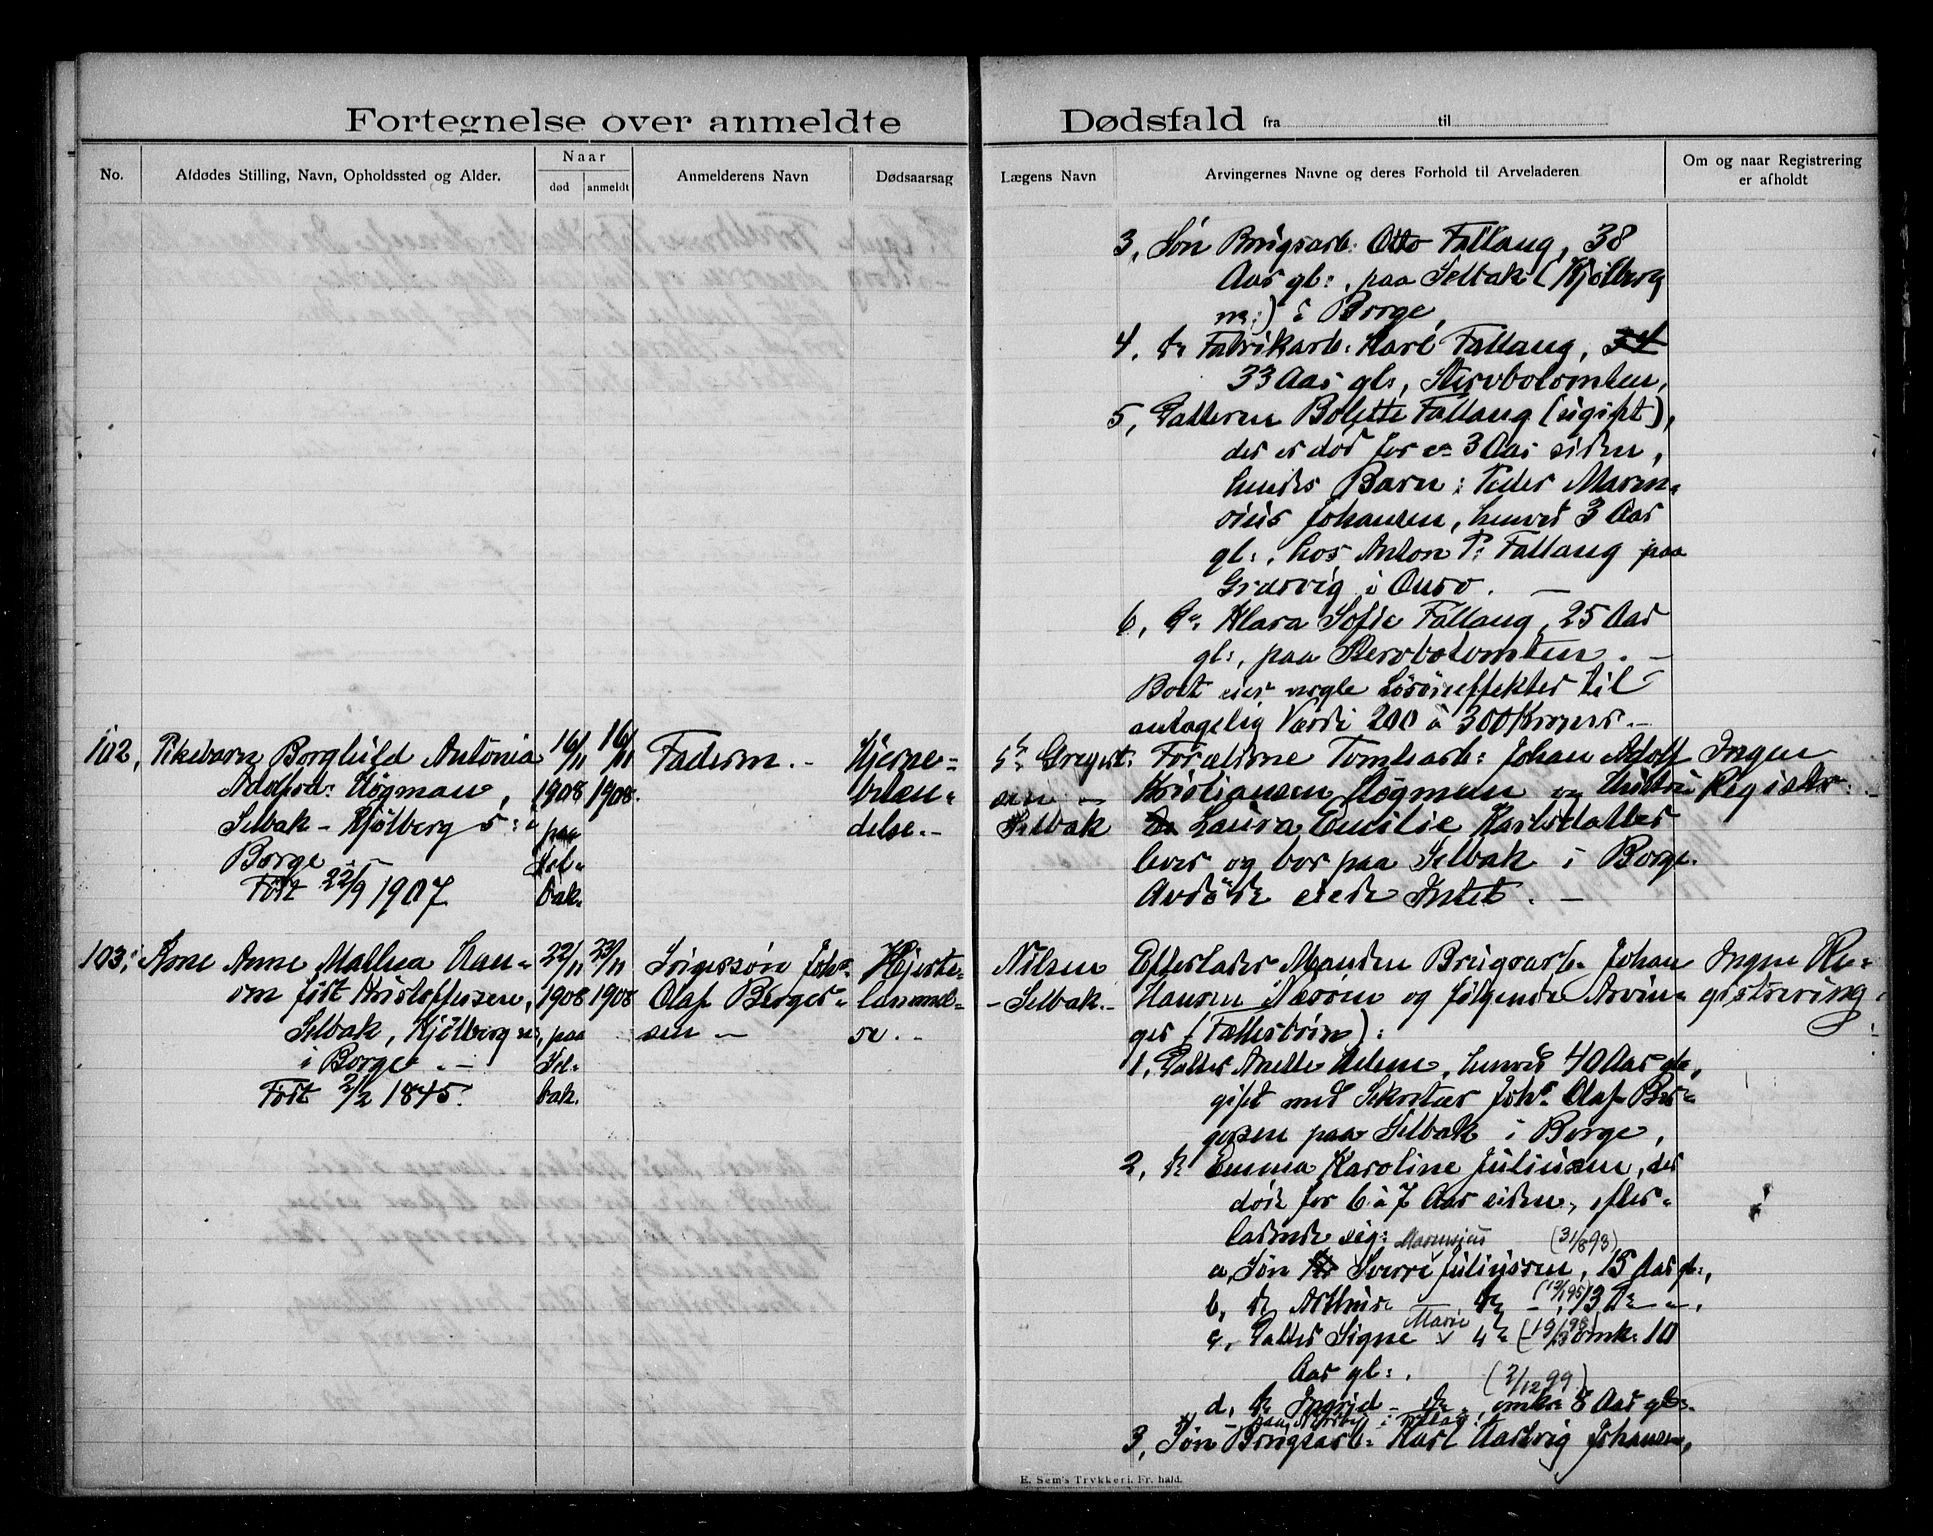 Fortegnelse over anmeldte Dødsfald fra til
No.
Afdødes Stilling, Navn, Opholdssted og Alder.
Naar
død
anmeldt
Anmelderens Navn
Dødsaarsag
Lægens Navn
Arvingernes Navne og deres Forhold til Arveladeren
Om og naar Registrering
er afholdt
3, Søn Brugsarb: Otto Fallang, 38
Aar gl:, paa Selbak (Kjølberg
) i Borge,
4, Fabrikarb: Karl Fallang, 34
33 Aar gl:,
5, Datteren Bolette Fallang (ugift),
der er død for ca 3 Aar siden,
hendes Barn: Peder Maren-
sius Johansen, henved 3 Aar
gl:, hos Anton P: Fallang paa
Græsvig i Onsø. —
6, Klara Sofie Fallang, 25 Aar
gl:, paa
Boet eier nogle Løsøreeffekter til
antagelig Værdi 200 à 300 Kroner. —
102,
Pikebarn Borghild Antonia
Adolfsd: Høgman,
Selbak - Kjølberg
Borge
Født 22/9 1907.
16/11
1908
paa
Sel-
bak.
16/11
1908.
Faderen. —
Hjerne-
betæn-
delse. —
Gregert-
sen —
Selbak
Forældrene Tomtearb: Johan Adolf
Kristiansen Høgman og Hustru
Laura Emilie Karlsdatter
lever og bor paa Selbak i Borge.
Avdøde eiede Intet. —
Ingen
Registr:
103,
Kone Anne Mathea Han-
sen født Kristoffersen,
Selbak, Kjølberg
i Borge. —
Født 2/2 1845.
22/11
1908
paa
Sel-
bak.
23/11
1908
Svigersøn Johs
Olaf Berger-
sen —
Hjerte-
lammel-
se. —
Nilsen
- Selbak. -
Efterlader Manden Brugsarb: Johan
Hansen Næsven og følgende Arvin-
ger (Fællesbørn):
1, Datter Anette Helene, henved 40 Aar gl:,
gift med Sekretær Johs. Olaf Ber-
gersen paa Selbak i Borge,
2, Emma Karoline Juliussen, der
døde for 6 à 7 Aar siden, efter-
ladende sig:
Marensius (31/8 93)
a, Søn Sverre Juliussen, 15 Aar gl:,
b, Arthur 13
Marie
c, Datter Signe omk: 10
Aar gl:.
(2/12 99)
d, Ingrid omkr 8 Aar gl:.
3, Søn Brugsarb: Karl Hartvig Johansen,
Ingen Re-
gistrering.
E. Sem's Trykkeri, Fr. hald.